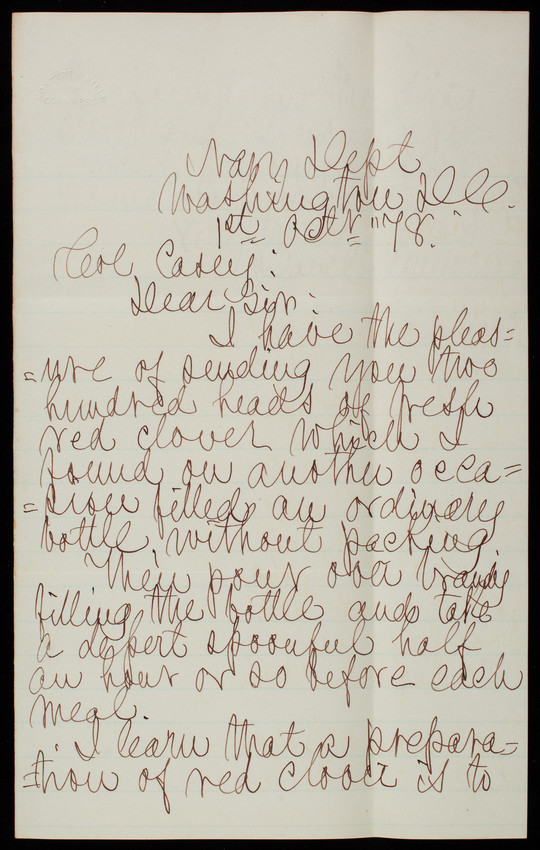 Navy Dept
Washington D.C.
1st Octr "78.
Col Casey:
Dear Sir:
I have the pleas=
=ure of sending you two
hundred heads of fresh
red clover which I
found on another occa=
=sion filled an ordinary
bottle without packing
Then pour over brandy
filling the bottle and take
a desert spoonful half
an hour or so before each
meal.
I learn that a prepara=
=tion of red clover is to